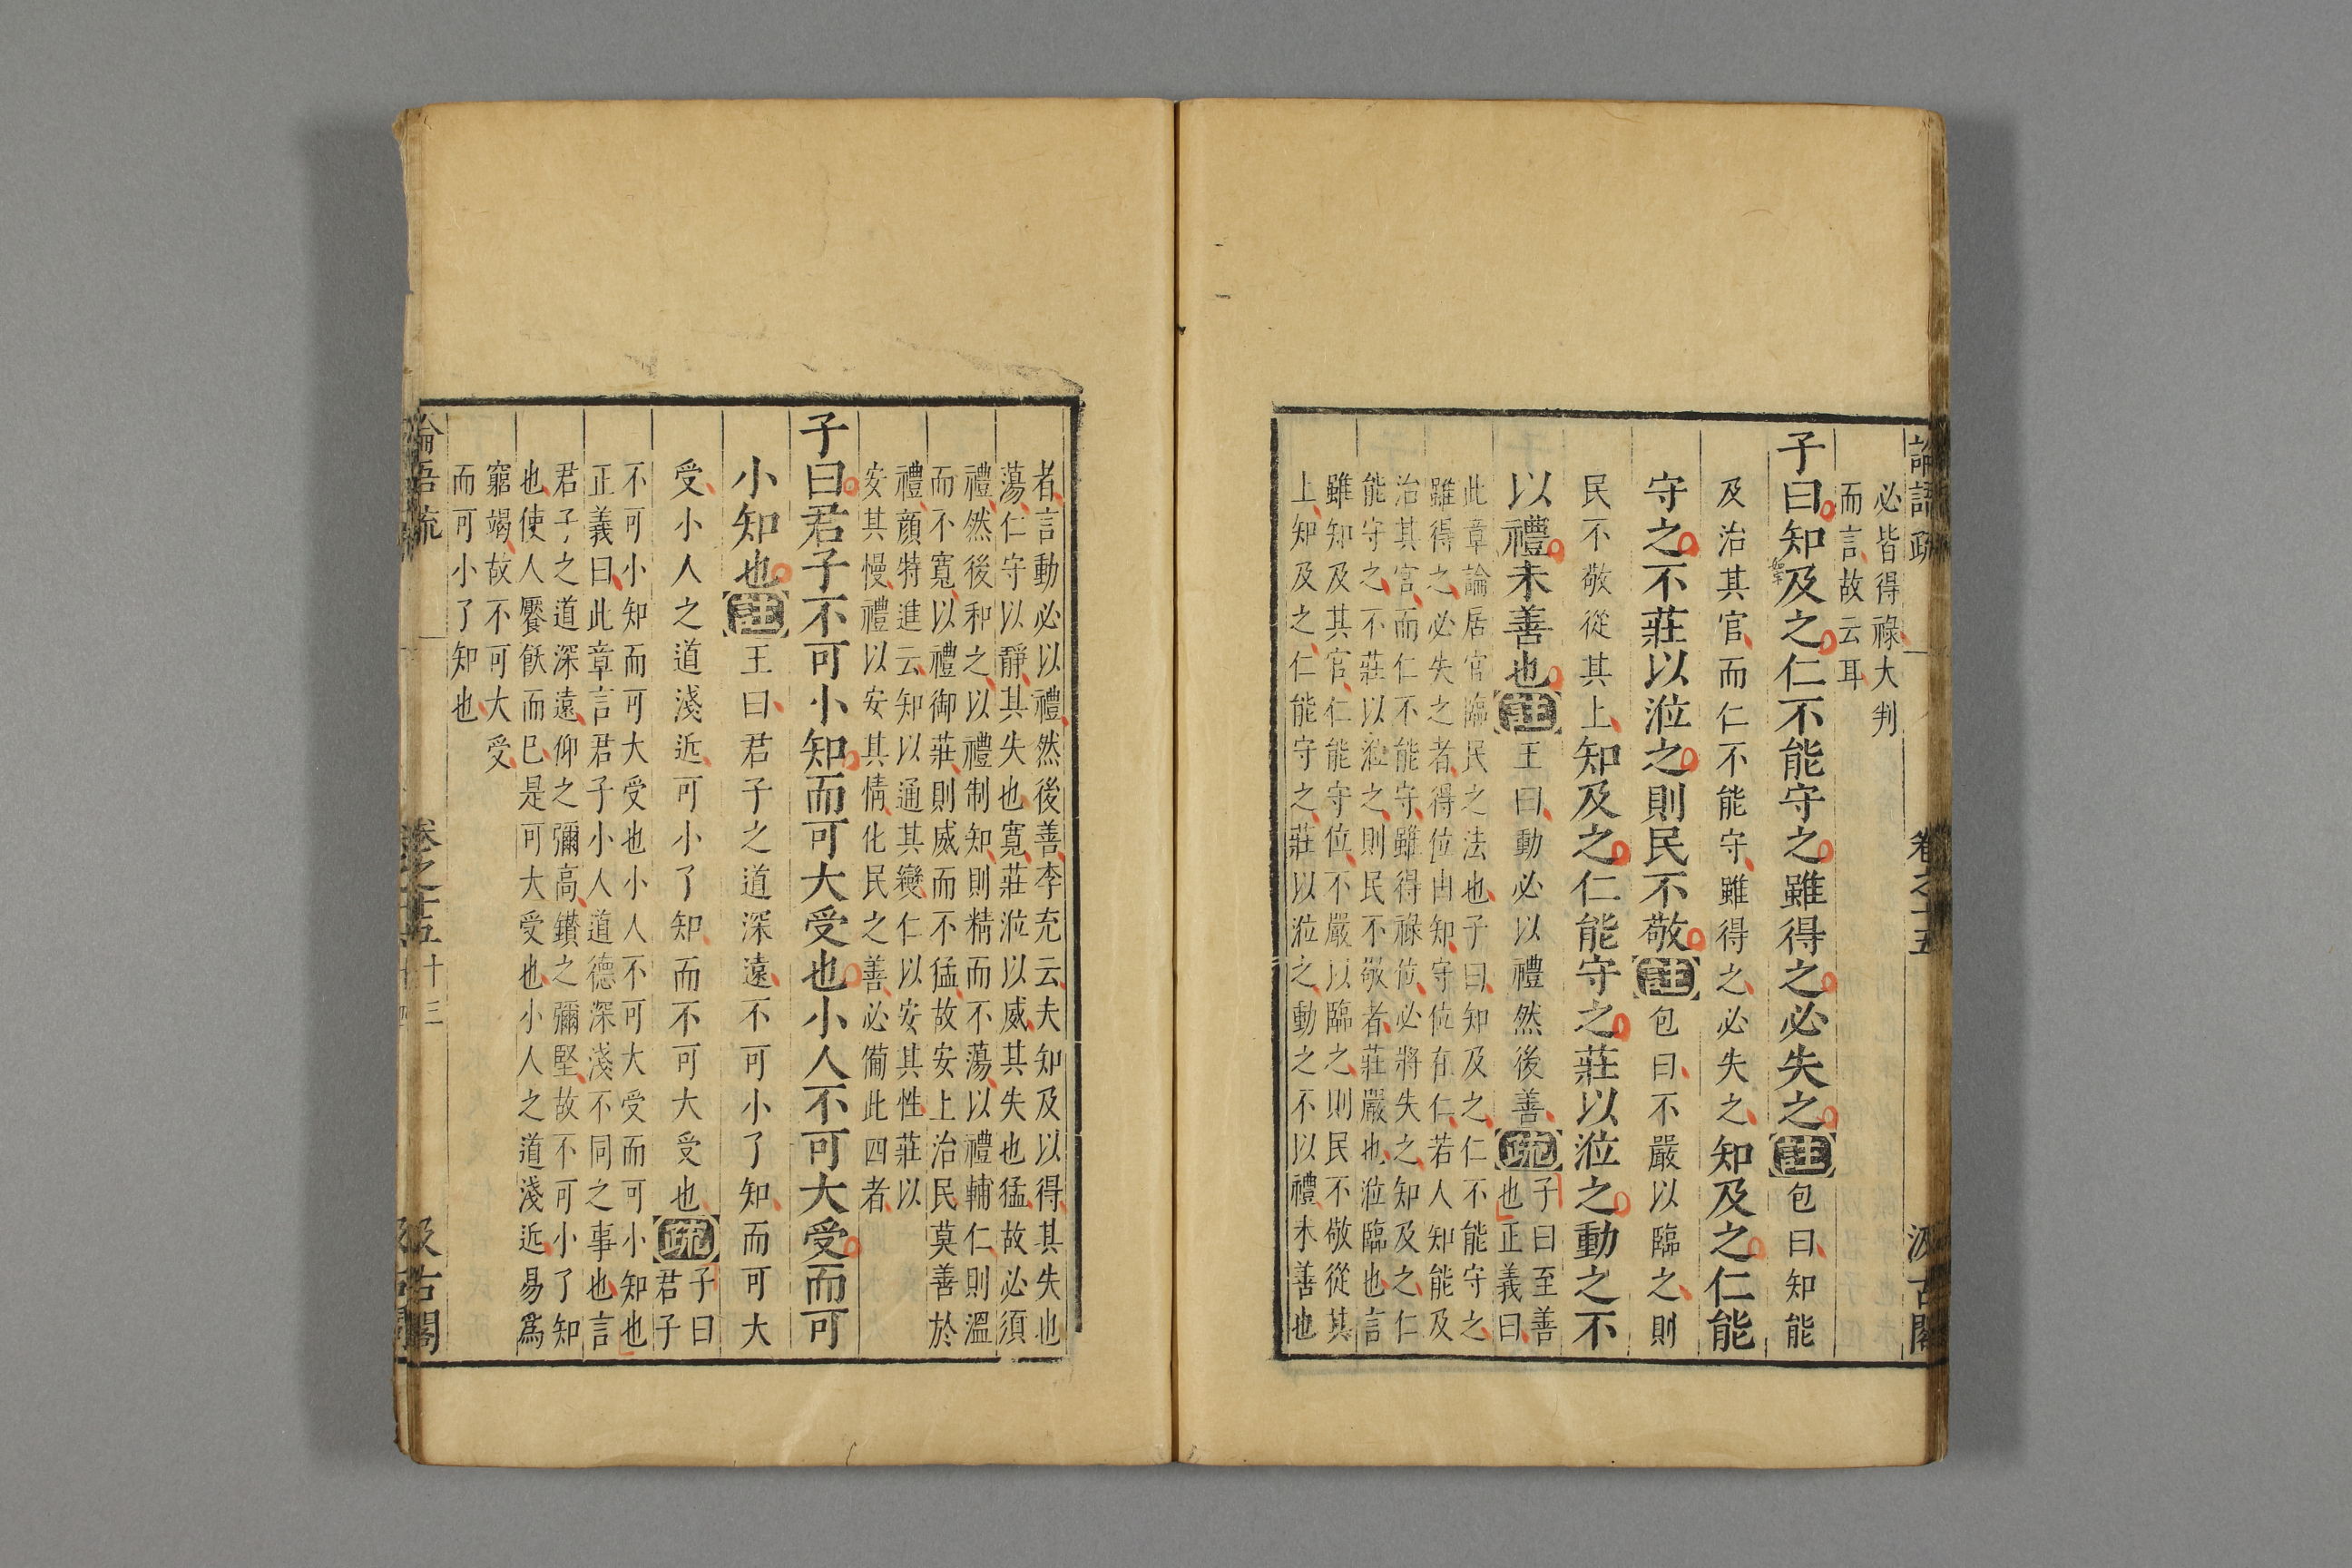 論語疏 卷之十五 汲古閣
必皆得祿大判
而言故云耳
子曰知及之仁不能守之雖得之必失之註包曰知能
及治其官而仁不能守雖得之必失之知及之仁能
守之不莊以涖之則民不敬註包曰不嚴以臨之則
民不敬從其上知及之仁能守之莊以涖之動之不
以禮未善也註王曰動必以禮然後善疏子曰至善
也正義曰
此章論居官臨民之法也子曰知及之仁不能守之
雖得之必失之者得位由知守位在仁若人知能及
治其官而仁不能守雖得祿位必將失之知及之仁
能守之不莊以涖之則民不敬者莊嚴也涖臨也言
雖知及其官仁能守位不嚴以臨之則民不敬從其
上知及之仁能守之莊以涖之動之不以禮未善也
者言動必以禮然後善李充云夫知及以得其失也
蕩仁守以靜其失也寬莊涖以威其失也猛故必須
禮然後和之以禮制知則精而不蕩以禮輔仁則溫
而不寬以禮御莊則威而不猛故安上治民莫善於
禮顏特進云知以通其變仁以安其性莊以
安其慢禮以安其情化民之善必備此四者
子曰君子不可小知而可大受也小人不可大受而可
小知也註王曰君子之道深遠不可小了知而可大
受小人之道淺近可小了知而不可大受也疏子曰
君子
不可小知而可大受也小人不可大受而可小知也
正義曰此章言君子小人道德深淺不同之事也言
君子之道深遠仰之彌高鑽之彌堅故不可小了知
也使人饜飫而已是可大受也小人之道淺近易爲
窮竭故不可大受
而可小了知也
論語疏 卷之十五 十三 汲古閣